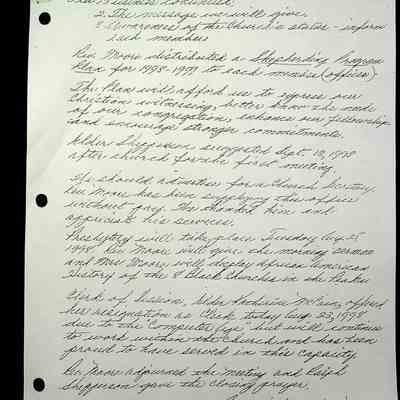 2. The message we will give.
3. Awareness of the Church's status - inform
each member
Rev. Moore distributed a Shepherding Program
Plan for 1998-1999 to each member (officer)
The Plan will afford us to express our
Christian witnessing, better know the needs
of our congregation, enhance our fellowship
and encourage stronger commitments.
Elder Shepperson suggested Sept. 13, 1998
after church for the first meeting.
We should advertise for a Church Secretary.
Rev. Moore has been supplying this office
without pay. We thanked him and
appreciate his services.
Presbytery will take place Tuesday Aug. 25
1998. Rev. Moore will give the morning sermon
and Mrs. Moore will display African American
History of the 8 Black Churches in the Peaks.
Clerk of Session, Elder Katherine McCain, offered
her resignation as Clerk today Aug 23, 1998
due to the "Computer Age" but will continue
to work within the Church and has been
proud to have served in this capacity.
Rev. Moore adjourned the meeting and Ralph
Shepperson gave the closing prayer.